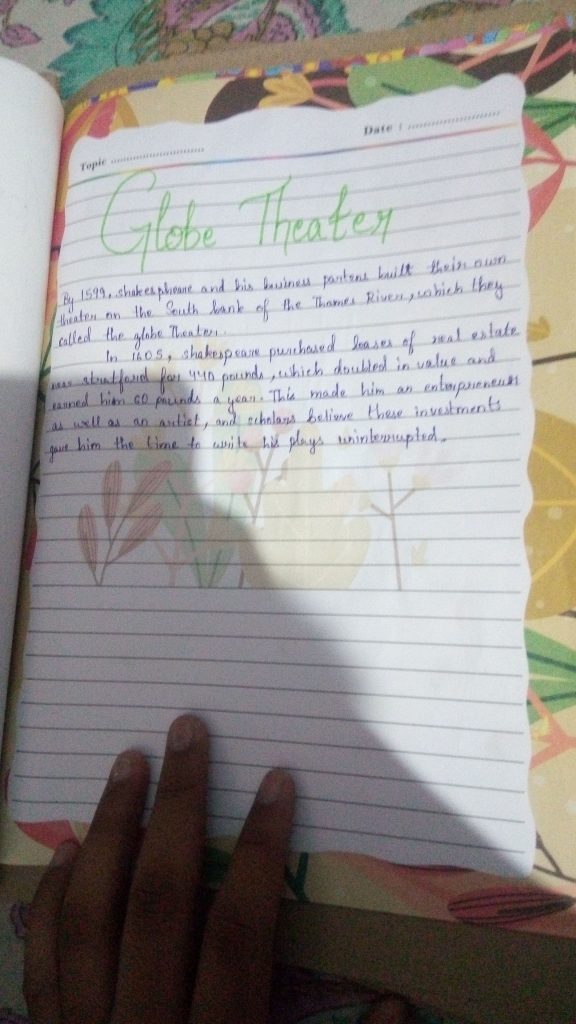 Topic ............................
Date : ............................
Globe Theater
By 1599, shakespheare and his business partens built their own
theater on the South bank of the Thames River, which they
called the globe Theater.
In 1605, shakespeare purchased leases of real estate
near stratford for 440 pounds, which doubled in value and
earned him 60 pounds a year. This made him an entrepreneur
as well as an artist, and scholars believe these investments
gave him the time to write his plays uninterrupted.